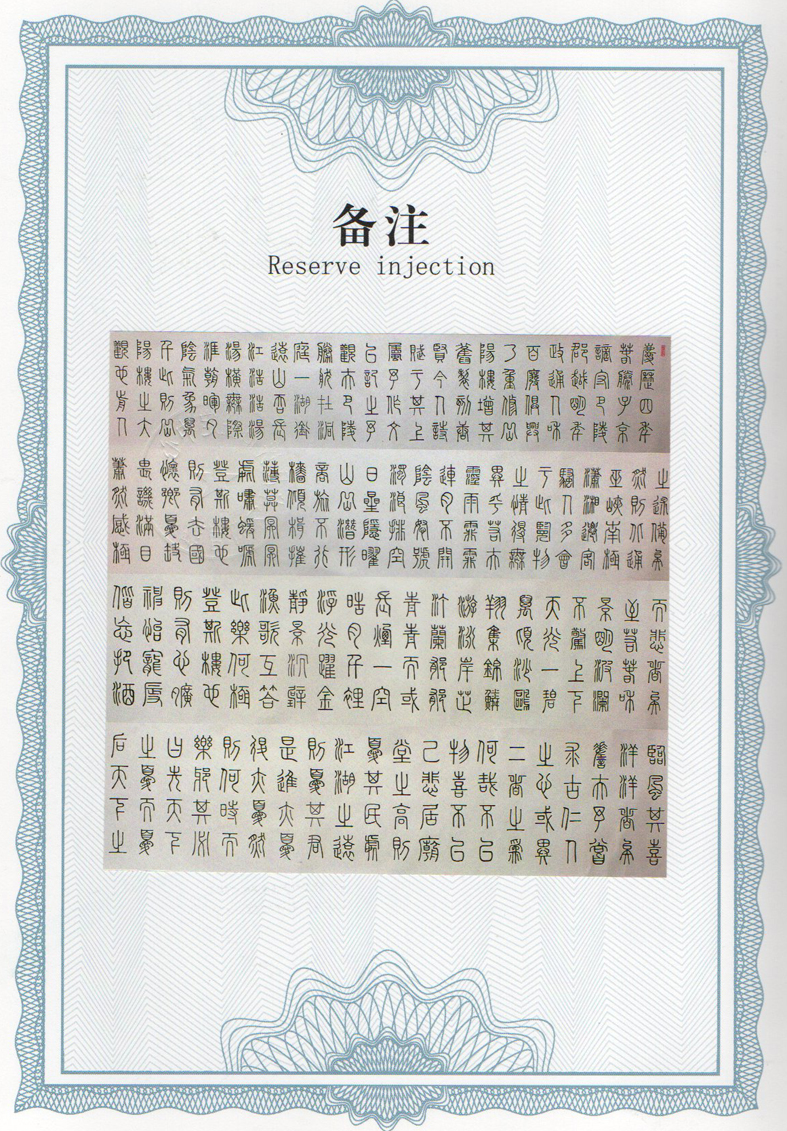 备注
Reserve injection
慶歷四年
春滕子京
謫守巴陵
郡越明年
政通人和
百廢俱興
乃重修岳
陽樓增其
舊製刻唐
賢今人詩
賦于其上
屬予作文
以記之予
觀夫巴陵
勝狀在洞
庭一湖銜
遠山吞長
江浩浩湯
湯橫無際
涯朝暉夕
陰氣象萬
千此則岳
陽樓之大
觀也前人
之述備矣
然則北通
巫峽南極
瀟湘遷客
騷人多會
于此覽物
之情得無
異乎若夫
霪雨霏霏
連月不開
陰風怒號
濁浪排空
日星隱曜
山岳潛形
商旅不行
檣傾楫摧
薄暮冥冥
虎嘯猿啼
登斯樓也
則有去國
懷鄉憂讒
畏譏滿目
蕭然感極
而悲者矣
至若春和
景明波瀾
不驚上下
天光一碧
萬頃沙鷗
翔集錦鱗
游泳岸芷
汀蘭郁郁
青青而或
長煙一空
皓月千里
浮光躍金
靜景沉璧
漁歌互答
此樂何極
登斯樓也
則有心曠
神怡寵辱
偕忘把酒
臨風其喜
洋洋者矣
嗟夫予嘗
求古仁人
之心或異
二者之為
何哉不以
物喜不以
己悲居廟
堂之高則
憂其民處
江湖之遠
則憂其君
是進亦憂
退亦憂然
則何時而
樂邪其必
曰先天下
之憂而憂
后天下之